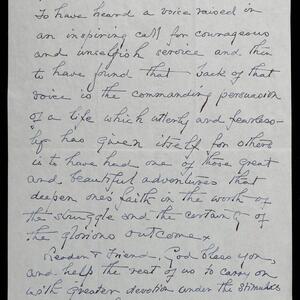 To have heard a voice raised in
an inspiring call for courageous
and unselfish service and then
to have found that back of that
voice is the commanding persuasion
of a life which utterly and fearless-
ly has given itself for others
is to have had one of those great
and beautiful adventures that
deepen ones faith in the worth of
the struggle and the certainty of
the glorious outcome.
Leader & Friend, God bless you,
and help the rest of us to carry on
with greater devotion under the stimulus